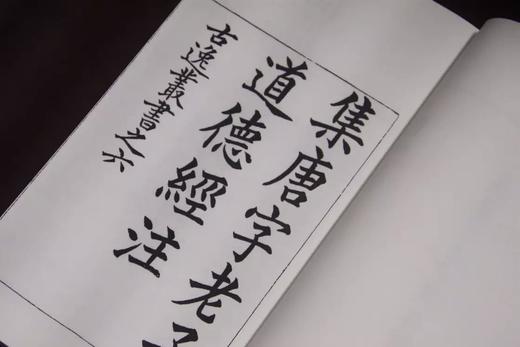 集唐字老子
道德經注
古逸叢書之六